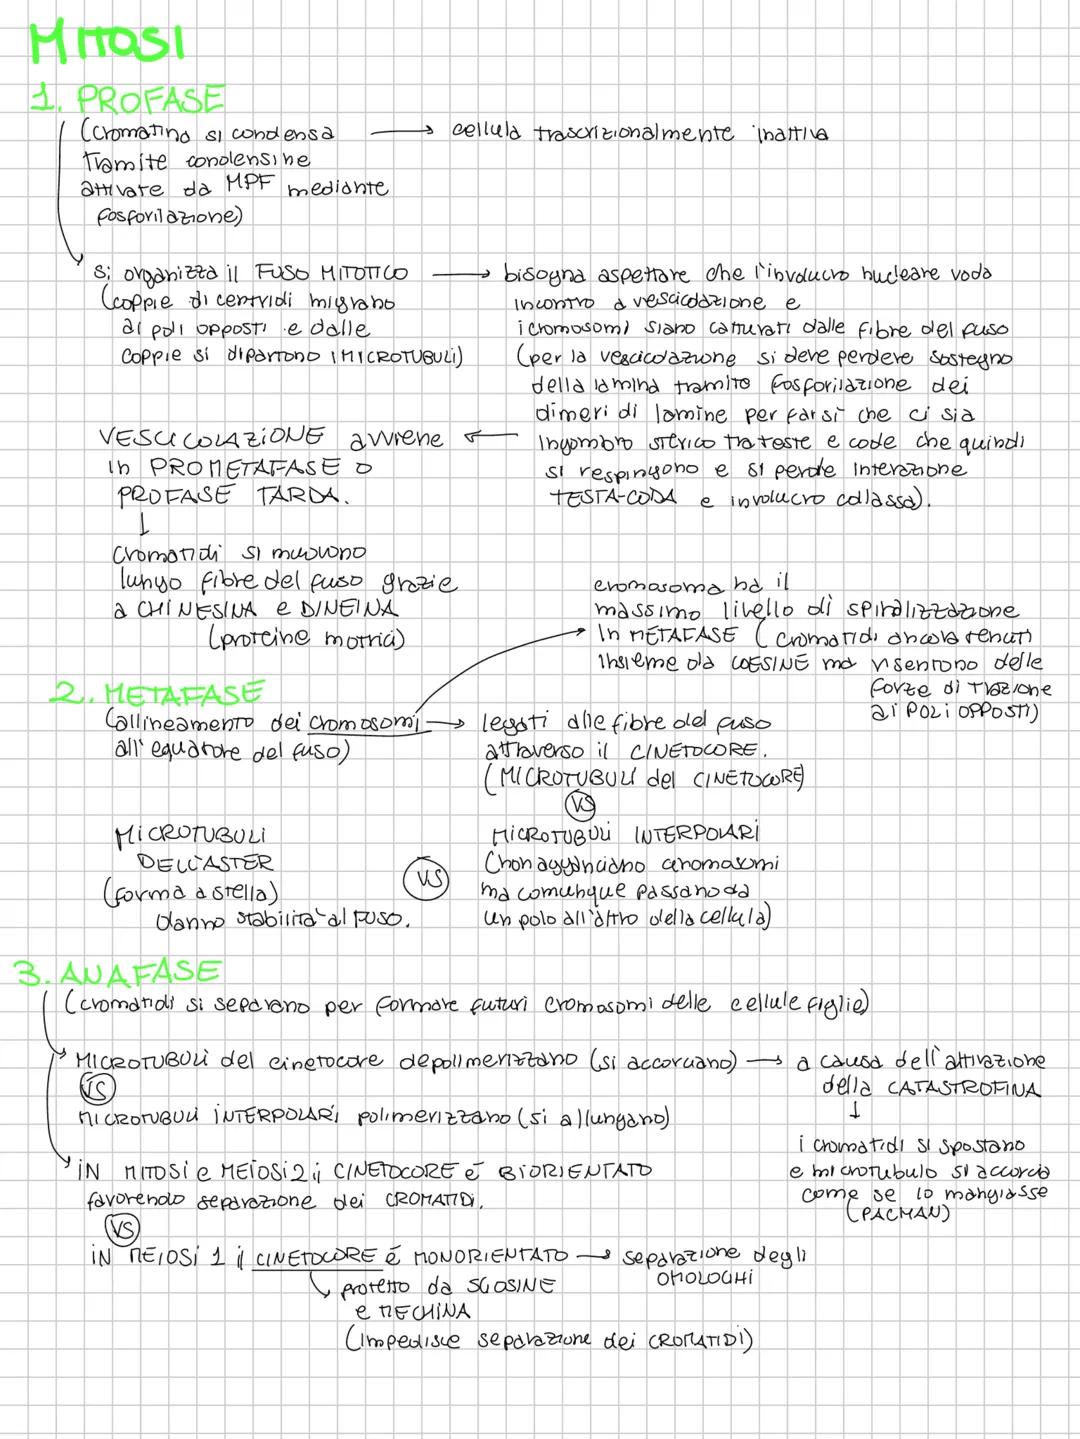 MITOSI
1. PROFASE
(cromatina si condensa → cellula trascrizionalmente inattiva
tramite condensine
attivate da MPF mediante
fosforilazione)
si organizza il FUSO MITOTICO → bisogna aspettare che l'involucro nucleare vada
(coppie di centrioli migrano
ai poli opposti e dalle
coppie si dipartono i MICROTUBULI)
incontro a vescicolazione e
i cromosomi siano catturati dalle fibre del fuso
(per la vescicolazione si deve perdere sostegno
della lamina tramite fosforilazione dei
dimeri di lamine per far sì che ci sia
ingombro sterico tra teste e code che quindi
si respingono e si perde interazione
TESTA-CODA e involucro collassa).
VESCICOLAZIONE avviene ←
in PROMETAFASE o
PROFASE TARDA.
↓
Cromatidi si muovono
lungo fibre del fuso grazie
a CHINESINA e DINEINA
(proteine motrici)
cromosoma ha il
massimo livello di spiralizzazione
in METAFASE (cromatidi ancora tenuti
insieme da COESINE ma risentono delle
forze di trazione
ai POLI OPPOSTI)
2. METAFASE
(allineamento dei cromosomi → legati alle fibre del fuso
all'equatore del fuso)
attraverso il CINETOCORE.
(MICROTUBULI del CINETOCORE)
VS
MICROTUBULI
DELL'ASTER
(forma a stella)
danno stabilità al FUSO.
VS
MICROTUBULI INTERPOLARI
(non agganciano cromosomi
ma comunque passano da
un polo all'altro della cellula)
3. ANAFASE
(cromatidi si separano per formare futuri cromosomi delle cellule figlie)
MICROTUBULI del cinetocore depolimerizzano (si accorciano) → a causa dell'attivazione
della CATASTROFINA
↓
i cromatidi si spostano
e microtubulo si accorcia
come se lo mangiasse
(PACMAN)
VS
MICROTUBULI INTERPOLARI polimerizzano (si allungano)
IN MITOSI e MEIOSI 2 il CINETOCORE è BIORIENTATO
favorendo separazione dei CROMATIDI.
VS
IN MEIOSI 1 il CINETOCORE è MONORIENTATO → separazione degli
OMOLOGHI
protetto da SGOSINE
e MECHINA
(impedisce separazione dei CROMATIDI)